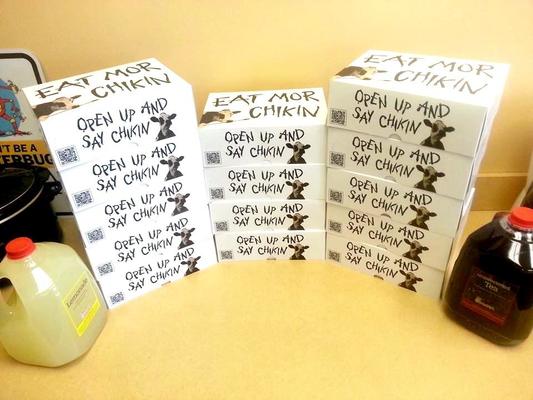 EAT MOR
CHIKIN
OPEN UP AND
SAY CHIKIN
OPEN UP AND
SAY CHIKIN
OPEN UP AND
SAY CHIKIN
OPEN UP AND
SAY CHIKIN
OPEN UP AND
SAY CHIKIN
EAT MOR
CHIKIN
OPEN UP AND
SAY CHIKIN
OPEN UP AND
SAY CHIKIN
OPEN UP AND
SAY CHIKIN
OPEN UP AND
SAY CHIKIN
EAT MOR
CHIKIN
OPEN UP AND
SAY CHIKIN
OPEN UP AND
SAY CHIKIN
OPEN UP AND
SAY CHIKIN
OPEN UP AND
SAY CHIKIN
OPEN UP AND
SAY CHIKIN
N'T BE A
TERBUG
Lemonade
Tea